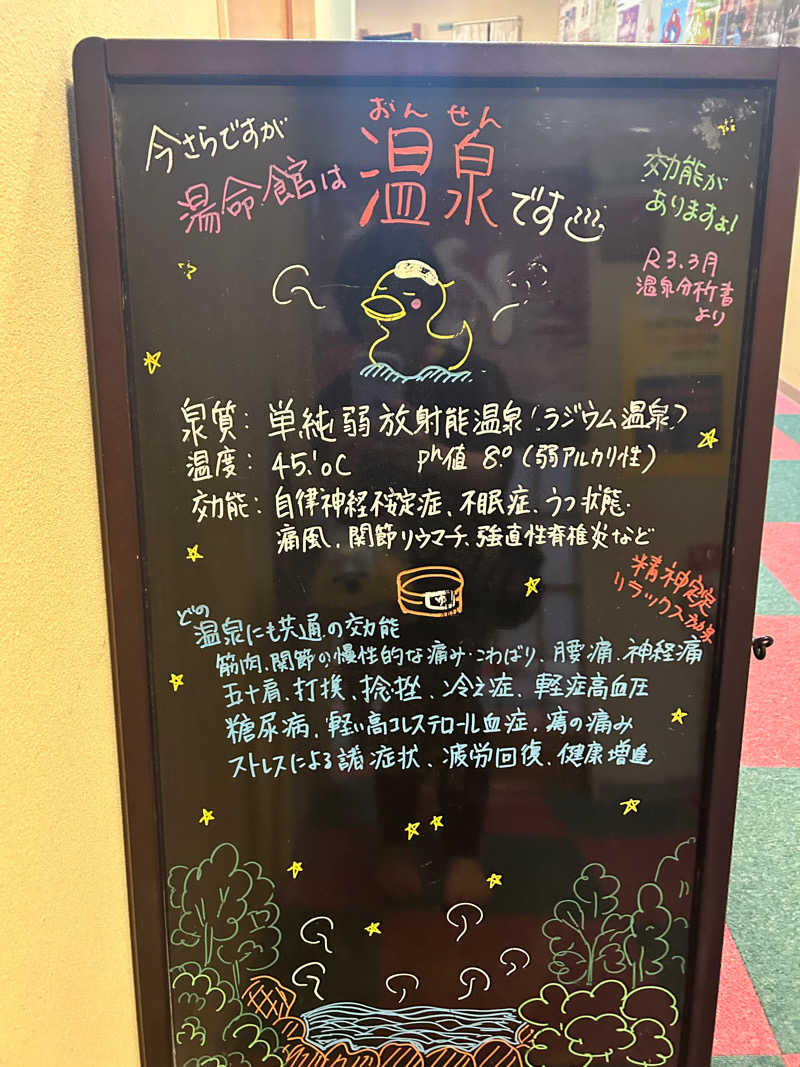 今さらですが
おんせん
湯命館は温泉です
効能が
ありますよ!
R3.3月
温泉分析書
より
泉質:単純弱放射能温泉(ラジウム温泉)
温度:45.1℃ ph値 8.0(弱アルカリ性)
効能:自律神経不安定症、不眠症、うつ状態、
痛風、関節リウマチ、強直性脊椎炎など
精神安定
リラックス効果
ゆ
どの
温泉にも共通の効能
筋肉、関節の慢性的な痛み・こわばり、腰痛、神経痛
五十肩、打撲、捻挫、冷え症、軽症高血圧
糖尿病、軽い高コレステロール血症、痔の痛み
ストレスによる諸症状、疲労回復、健康増進